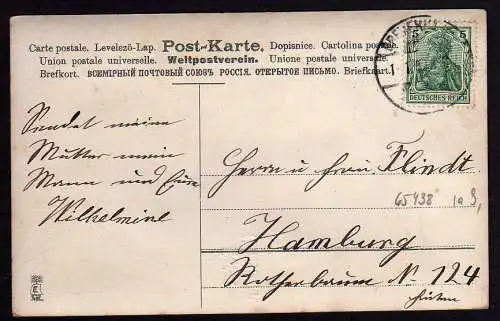 Carte postale. Levelező-Lap. Post-Karte. Dopisnice. Cartolina postale.
Union postale universelle. Weltpostverein. Union postale universelle.
Brefkort. ВСЕМІРНЫЙ ПОЧТОВЫЙ СОЮЗЪ РОССІЯ. ОТКРЫТОЕ ПИСЬМО. Briefkaart.
5 5
DEUTSCHES REICH
Sendet meine
Mutter mein
Mann und Eure
Wilhelmine
Herrn u Frau Flindt
65438
Hamburg
Rotherbaum No. 124